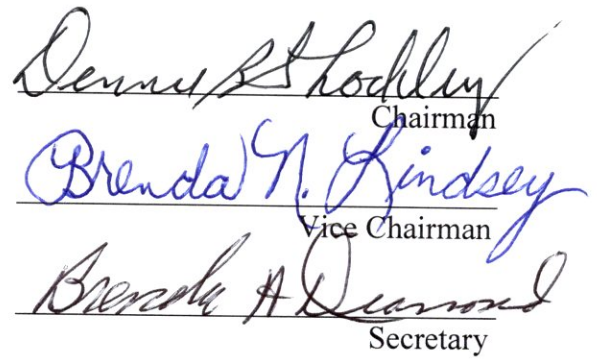 Dennis B Shockley
Chairman
Brenda N. Lindsey
Vice Chairman
Brenda A Diamond
Secretary